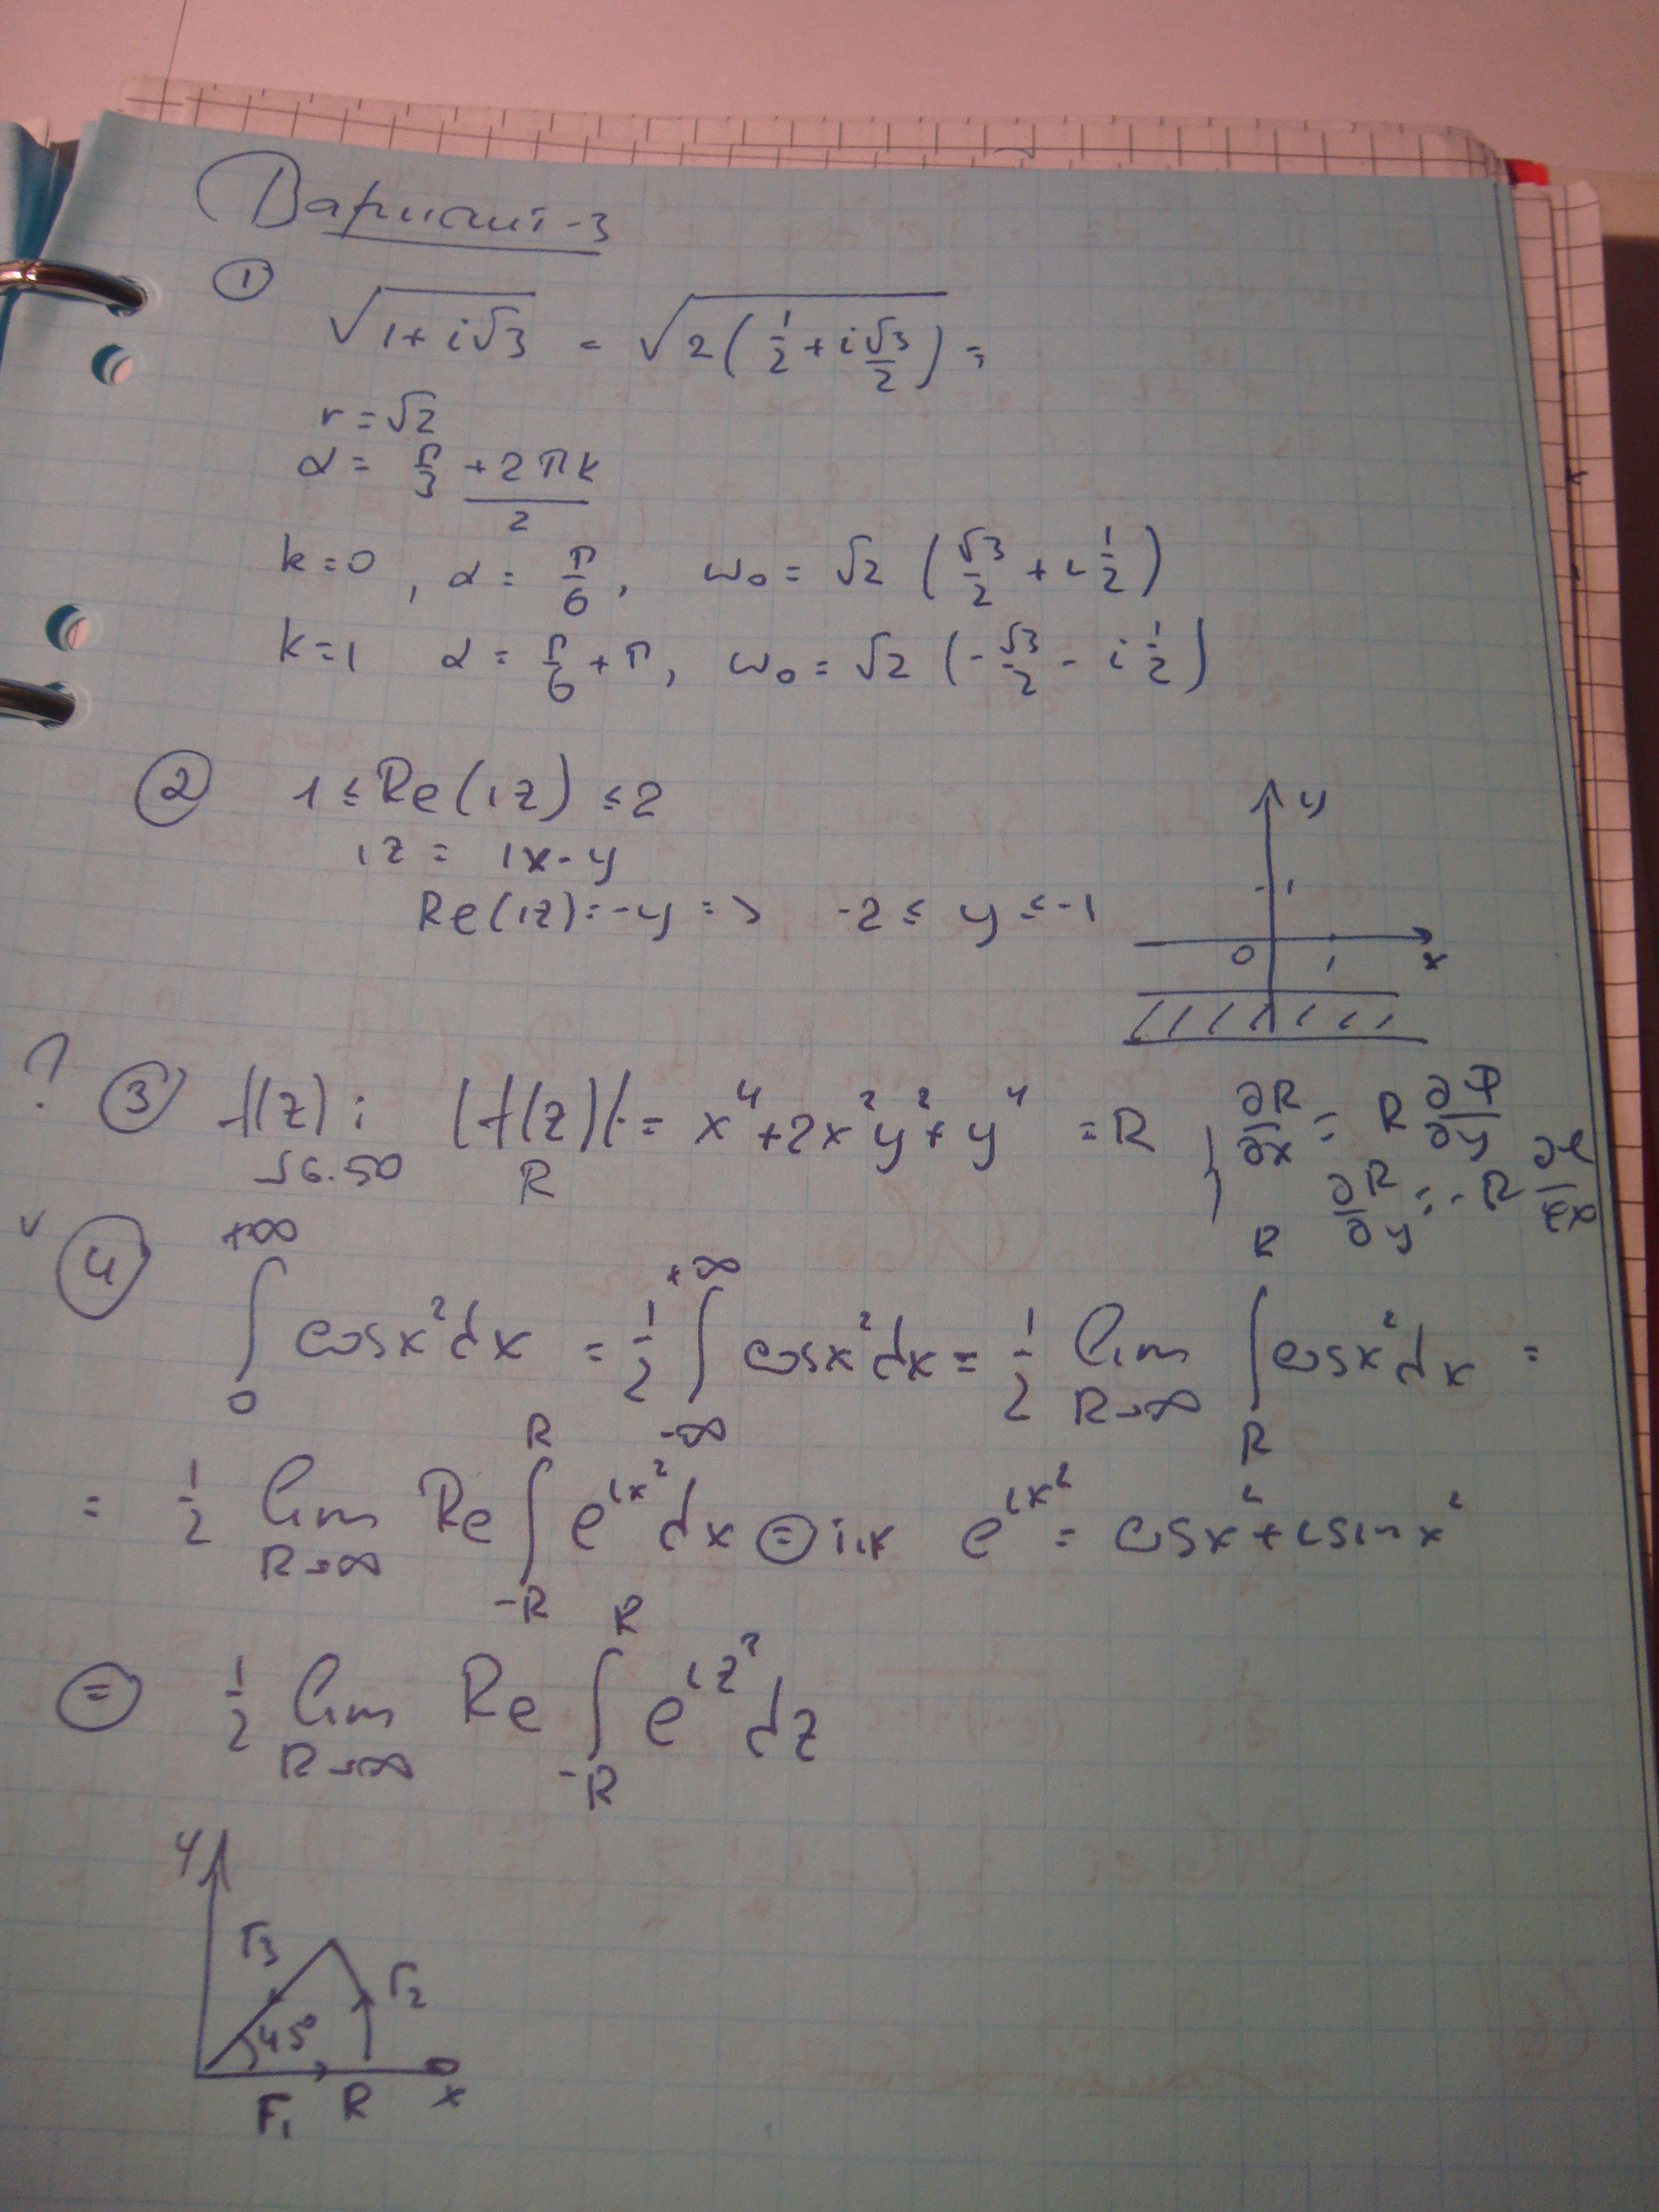 Вариант-3
①
√(1+i√3) = √(2(1/2+i√3/2)) =
r=√2
α= (π/3+2πk)/2
k=0, α= π/6, ω₀= √2 (√3/2+i 1/2)
k=1 α= π/6+π, ω₀= √2 (-√3/2-i 1/2)
② 1≤Re(iz)≤2
iz= ix-y
Re(iz)=-y => -2≤y≤-1
y
1
0 1 x
? ③ f(z): |f(z)|= x⁴+2x²y²+y⁴ =R, ∂R/∂x= R ∂Φ/∂y
√6.50 R ∂R/∂y=-R ∂Φ/∂x
v ④
∫₀^{+∞} cosx²dx = 1/2 ∫_{-∞}^{+∞} cosx²dx = 1/2 lim_{R→∞} ∫_R^R cosx²dx =
= 1/2 lim_{R→∞} Re ∫_{-R}^R e^{ix²}dx ⊜ т.к e^{ix²}= cosx²+isinx²
⊜ 1/2 lim_{R→∞} Re ∫_{-R}^R e^{iz²}dz
y
Γ₃
Γ₂
45°
Γ₁ R x